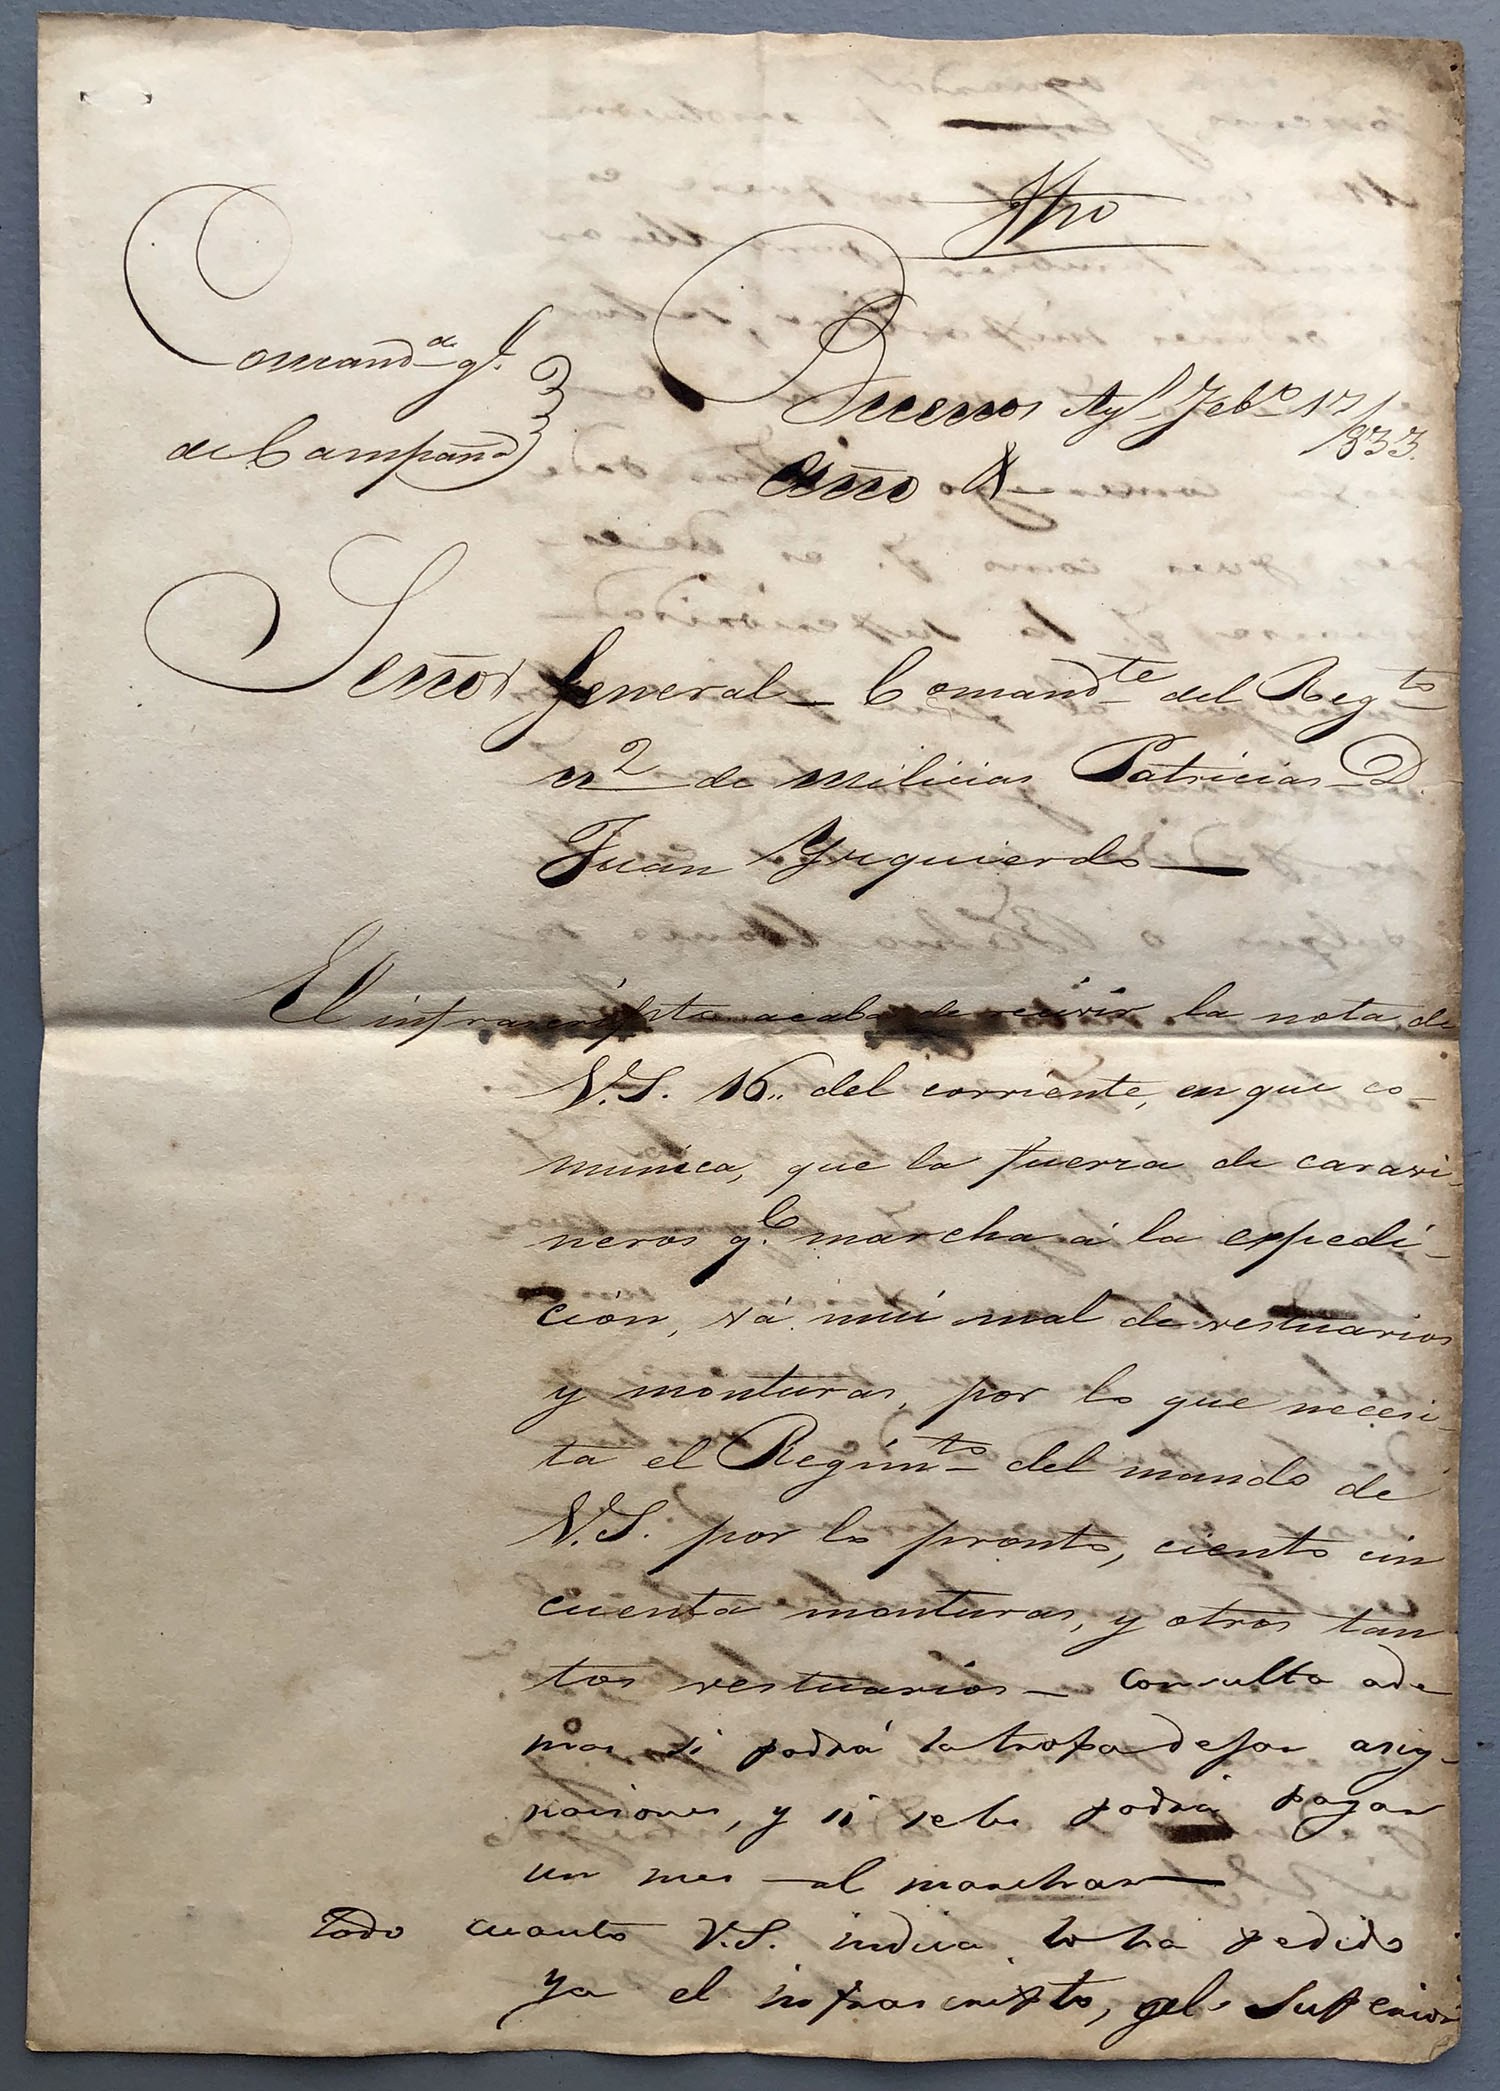 Comand.a gl.
de Campaña
Buenos Ays. Feb.o 17/833.
Año
Señor General Comand.te del Reg.to
n.2 de milicias Patricias D.
Juan Yzquierdo
El infrascripto acaba de recivir la nota de
V.S. 16,, del corriente, en que co-
munica, que la fuerza de caravi-
neros q.e marcha á la expedi-
ción, vá mui mal de vestuarios
y monturas, por lo que necesi-
ta el Regim.to del mando de
V.S. por lo pronto, ciento cin
cuenta monturas, y otros tan
tos vestuarios - Consulta ade
mas si podrá la tropa dejar asig-
naciones, y si se les podrá pagar
un mes al marchar
Todo cuanto V.S. indica lo ha pedido
ya el infrascripto, Superior